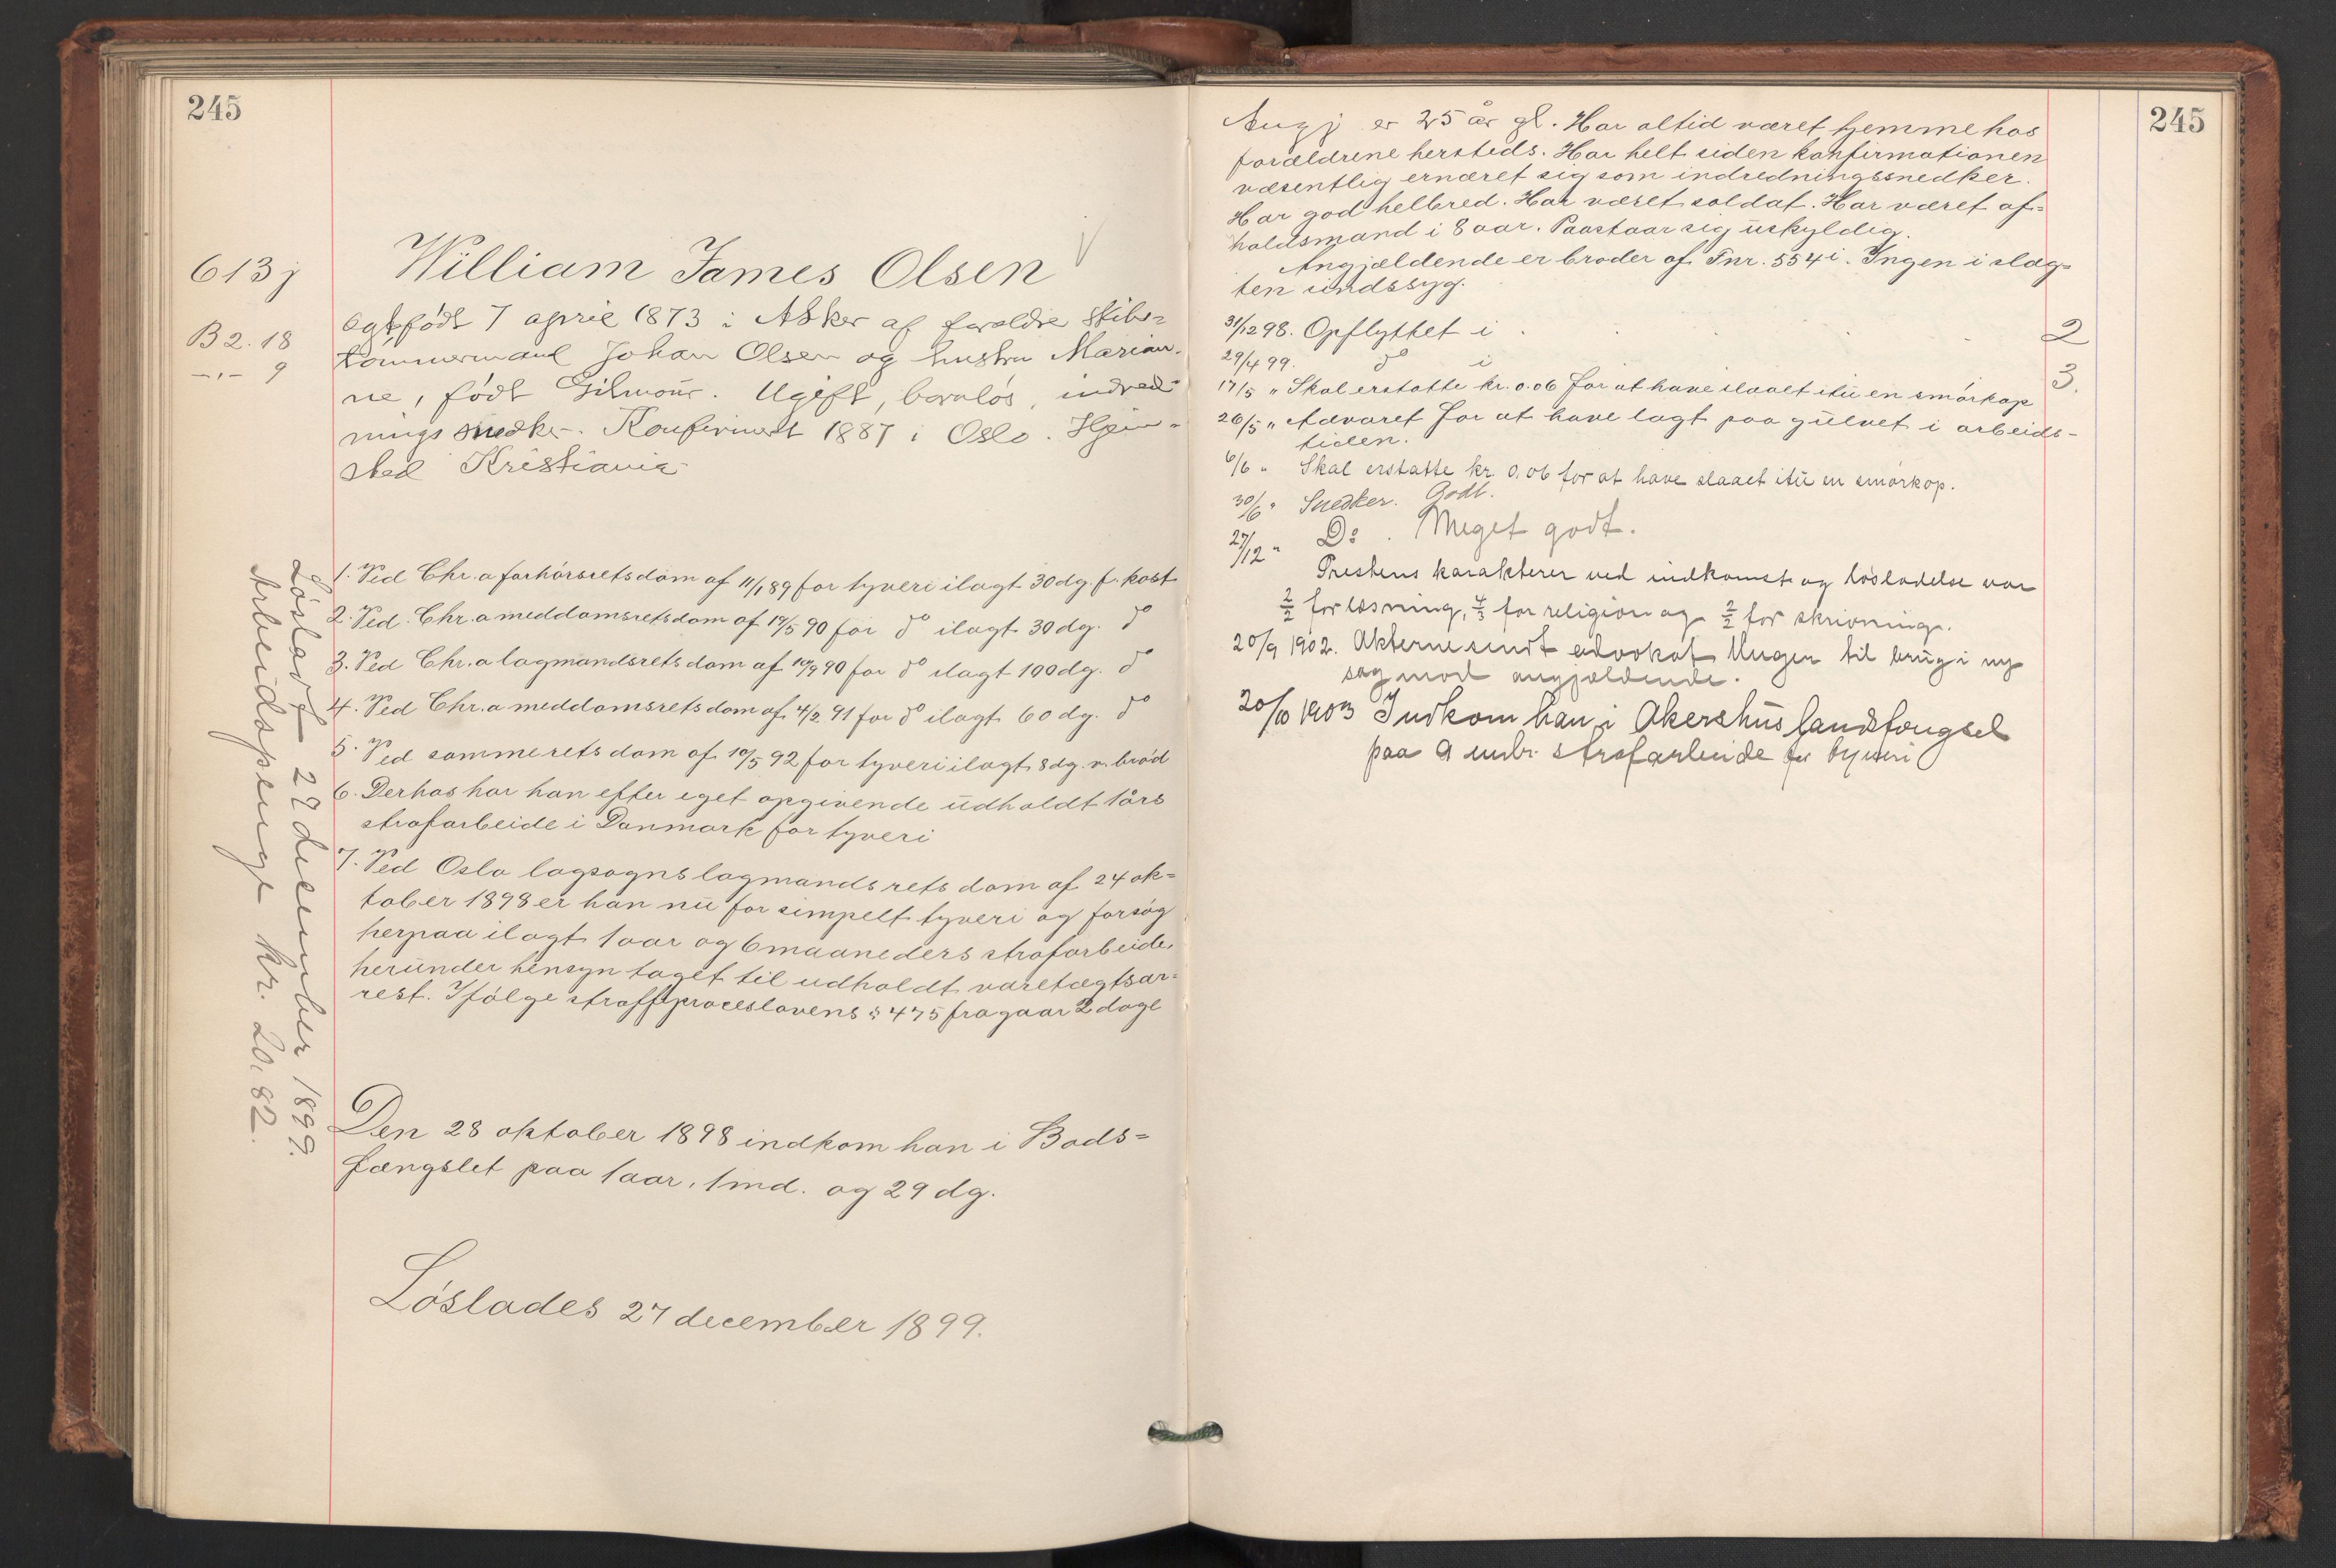 245
613 j
William James Olsen
B 2. 18
-"- 9
Ægtefødt 7 april 1873 i Asker af forældre skibs=
tømmermand Johan Olsen og hustru Marian-
ne, født Gilmour. Ugift, barnløs, indred=
nings snedker. Konfirmert 1887 i Oslo. Hjem=
sted Kristiania
1. Ved Chr.a forhörsretsdom af 11/1 89 for tyveri ilagt 30 dg. f. kost
2. Ved Chr.a meddomsretsdom af 19/5 90 for do ilagt 30 dg. do
3. Ved Chr.a lagmandsretsdom af 10/9 90 for do ilagt 100 dg. do
4. Ved Chr.a meddomsretsdom af 4/2 91 for do ilagt 60 dg. do
5. Ved samme rets dom af 10/5 92 for tyveri ilagt 8 dg. v. bröd
6. Derhos har han efter eget opgivende udholdt 1 års
strafarbeide i Danmark for tyveri
7. Ved Oslo lagsogns lagmandsrets dom af 24 ok=
tober 1898 er han nu for simpelt tyveri og forsög
herpaa ilagt 1 aar og 6 maaneders strafarbeide,
herunder hensyn taget til udholdt varetægtsar=
rest. Ifölge straffeproceslovens § 475 fragaar 2 dage
Den 28 oktober 1898 indkom han i Bods=
fængslet paa 1 aar, 1 md. og 29 dg.
Löslades 27 december 1899.
Lösladt 27 december 1899.
Arbeidspenge kr. 20.82.
245
Angj er 25 år gl. Har altid været hjemme hos
forældrene hersteds. Har helt siden konfirmationen
væsentlig ernæret sig som indredningssnedker.
Har god helbred. Har været soldat. Har været af=
holdsmand i 8 aar. Paastaar sig uskyldig.
Angjældende er broder af Fnr. 554 i. Ingen i slæg=
ten sindssyg.
31/12 98. Opflyttet i . . . . 2
29/4 99. do i 3.
17/5 " Skal erstatte kr. 0.06 for at have slaaet itu en smörkop
26/5 " Advaret for at have lagt paa gulvet i arbeids-
tiden.
6/6 " Skal erstatte kr. 0,06 for at have slaaet itu en smörkop.
30/6 " Snedker. Godt.
27/12 " Do. Meget godt.
Prestens karakterer ved indkomst og lösladelse var
2/2 for læsning, 4/3 for religion og 2/2 for skrivning.
20/9 1902. Akterne sendt advokat Unger til brug i ny
sag mod angjældende.
20/10 1903 Indkom han i Akershus landsfængsel
paa 9 mdr. strafarbeide for tyveri